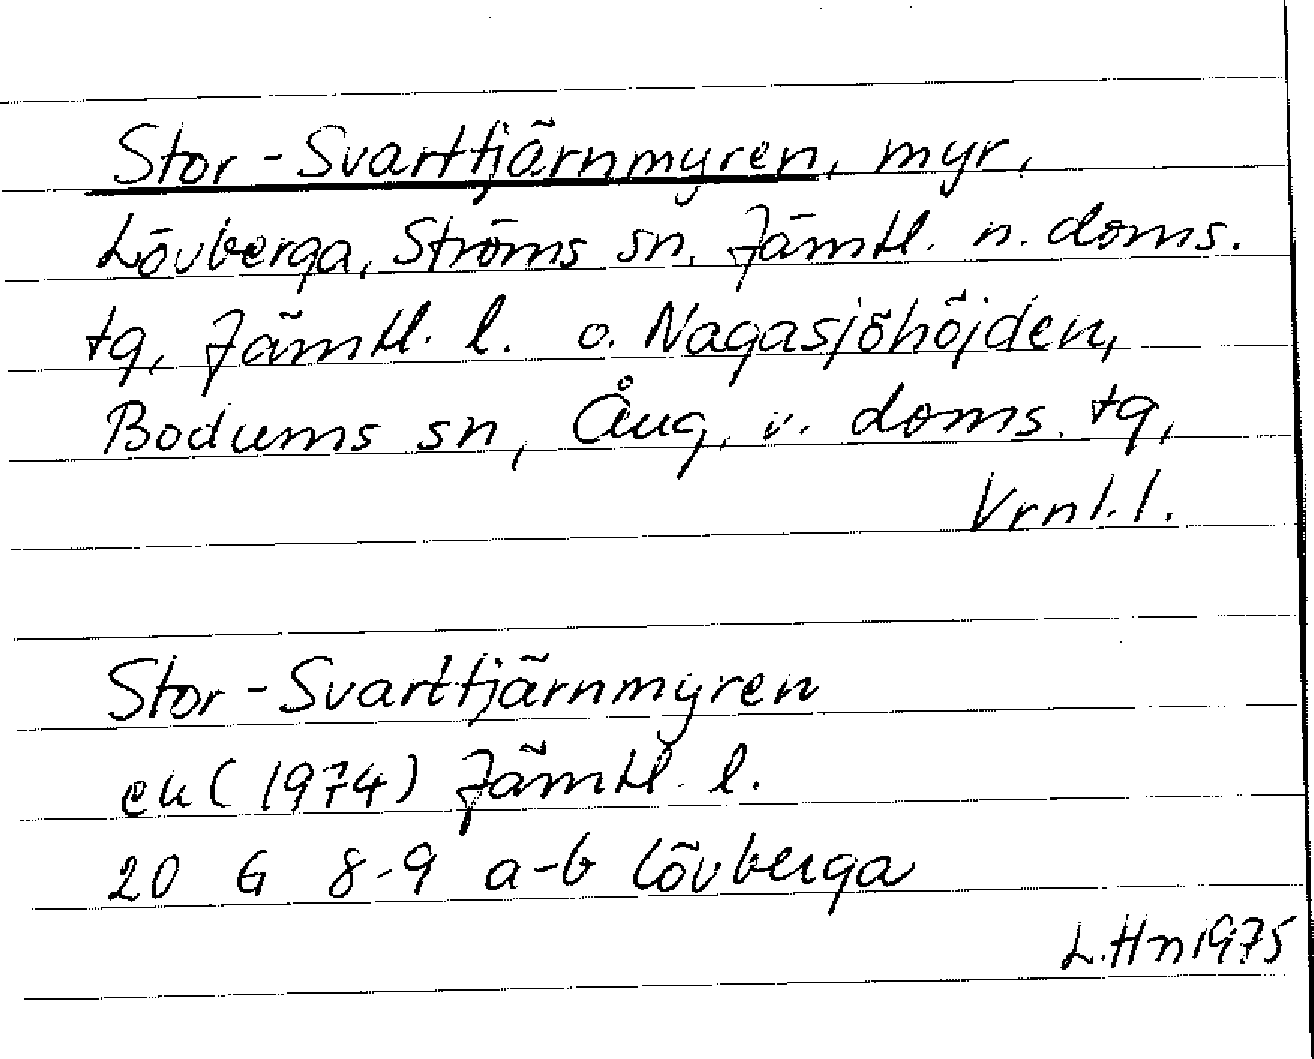 Stor-Svarttjärnmyren, myr,
Lövberga, Ströms sn. Jämtl. n. doms.
tg, Jämtl. l. o. Nagasjöhöjden,
Bodums sn, Ång. v. doms. tg,
Vrnl. l.
Stor-Svarttjärnmyren
ek (1974) Jämtl. l.
20 G 8-9 a-b Lövberga
L.Hn 1975